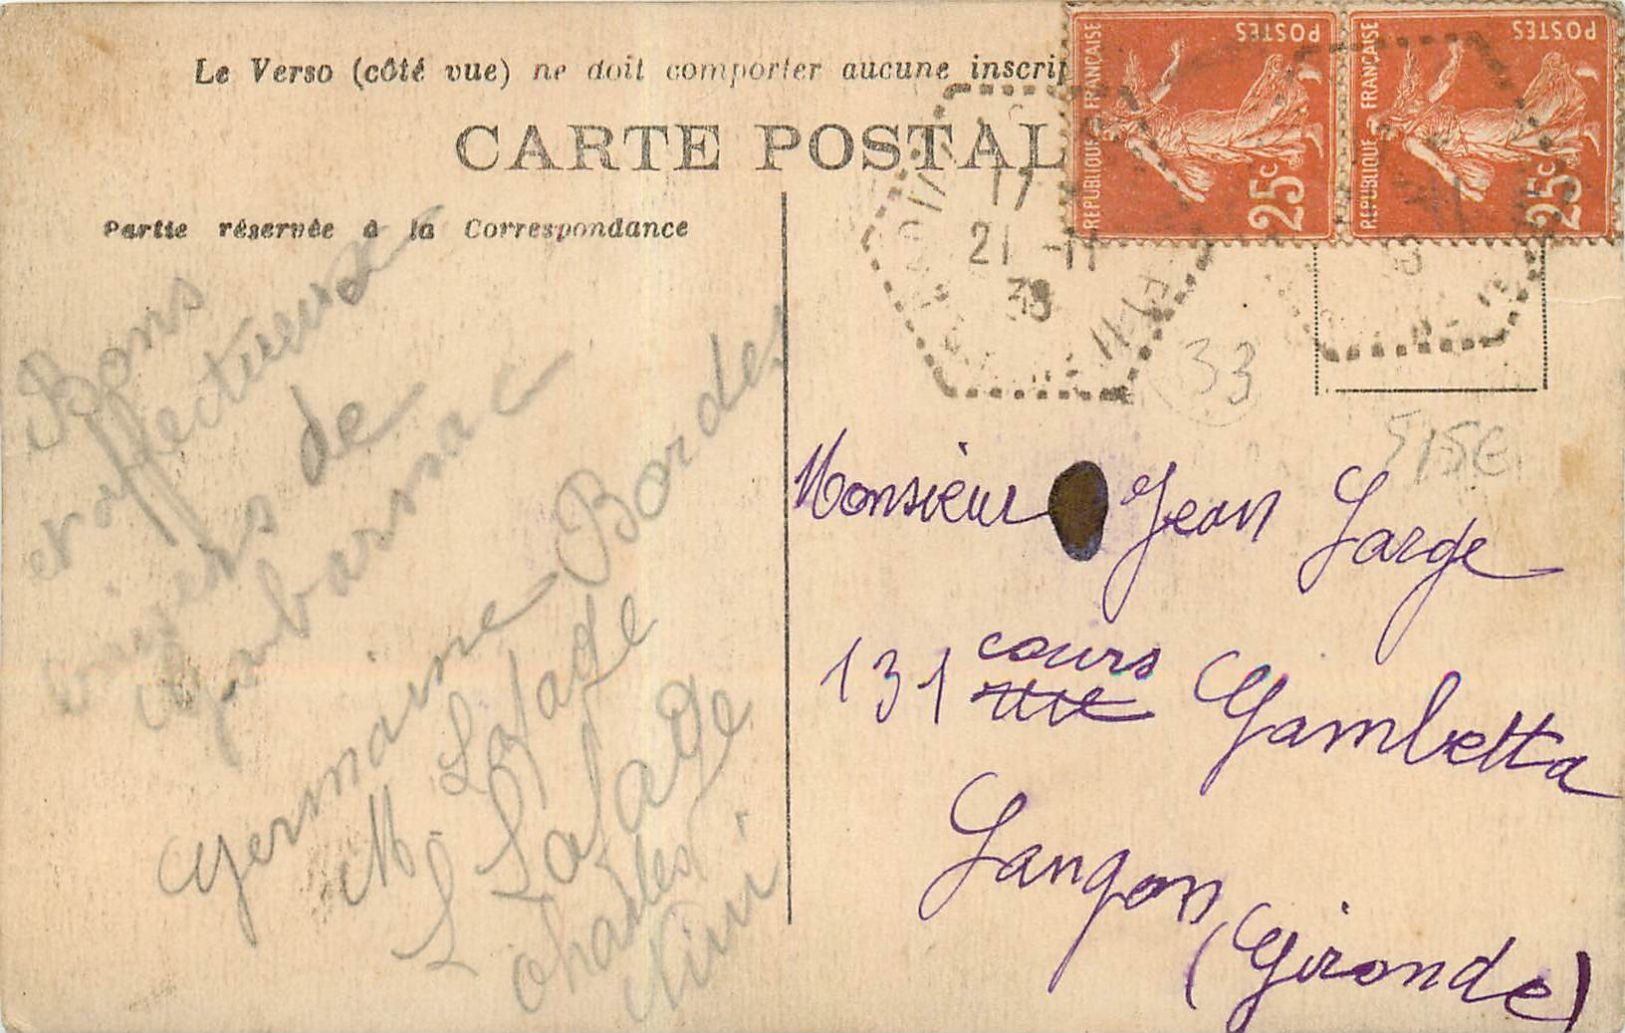 Le Verso (côté vue) ne doit comporter aucune inscrip
CARTE POSTAL
Partie réservée à la Correspondance
REPUBLIQUE FRANÇAISE
POSTES
25c
REPUBLIQUE FRANÇAISE
POSTES
25c
17
21 -11
38
33
515E
Bons
et affectueux
de
Germaine Bordes
M Lafage
L Lafage
Charles
Nini
Monsieur Jean Large
131 cours
rue Gambetta
Langon
(Gironde)